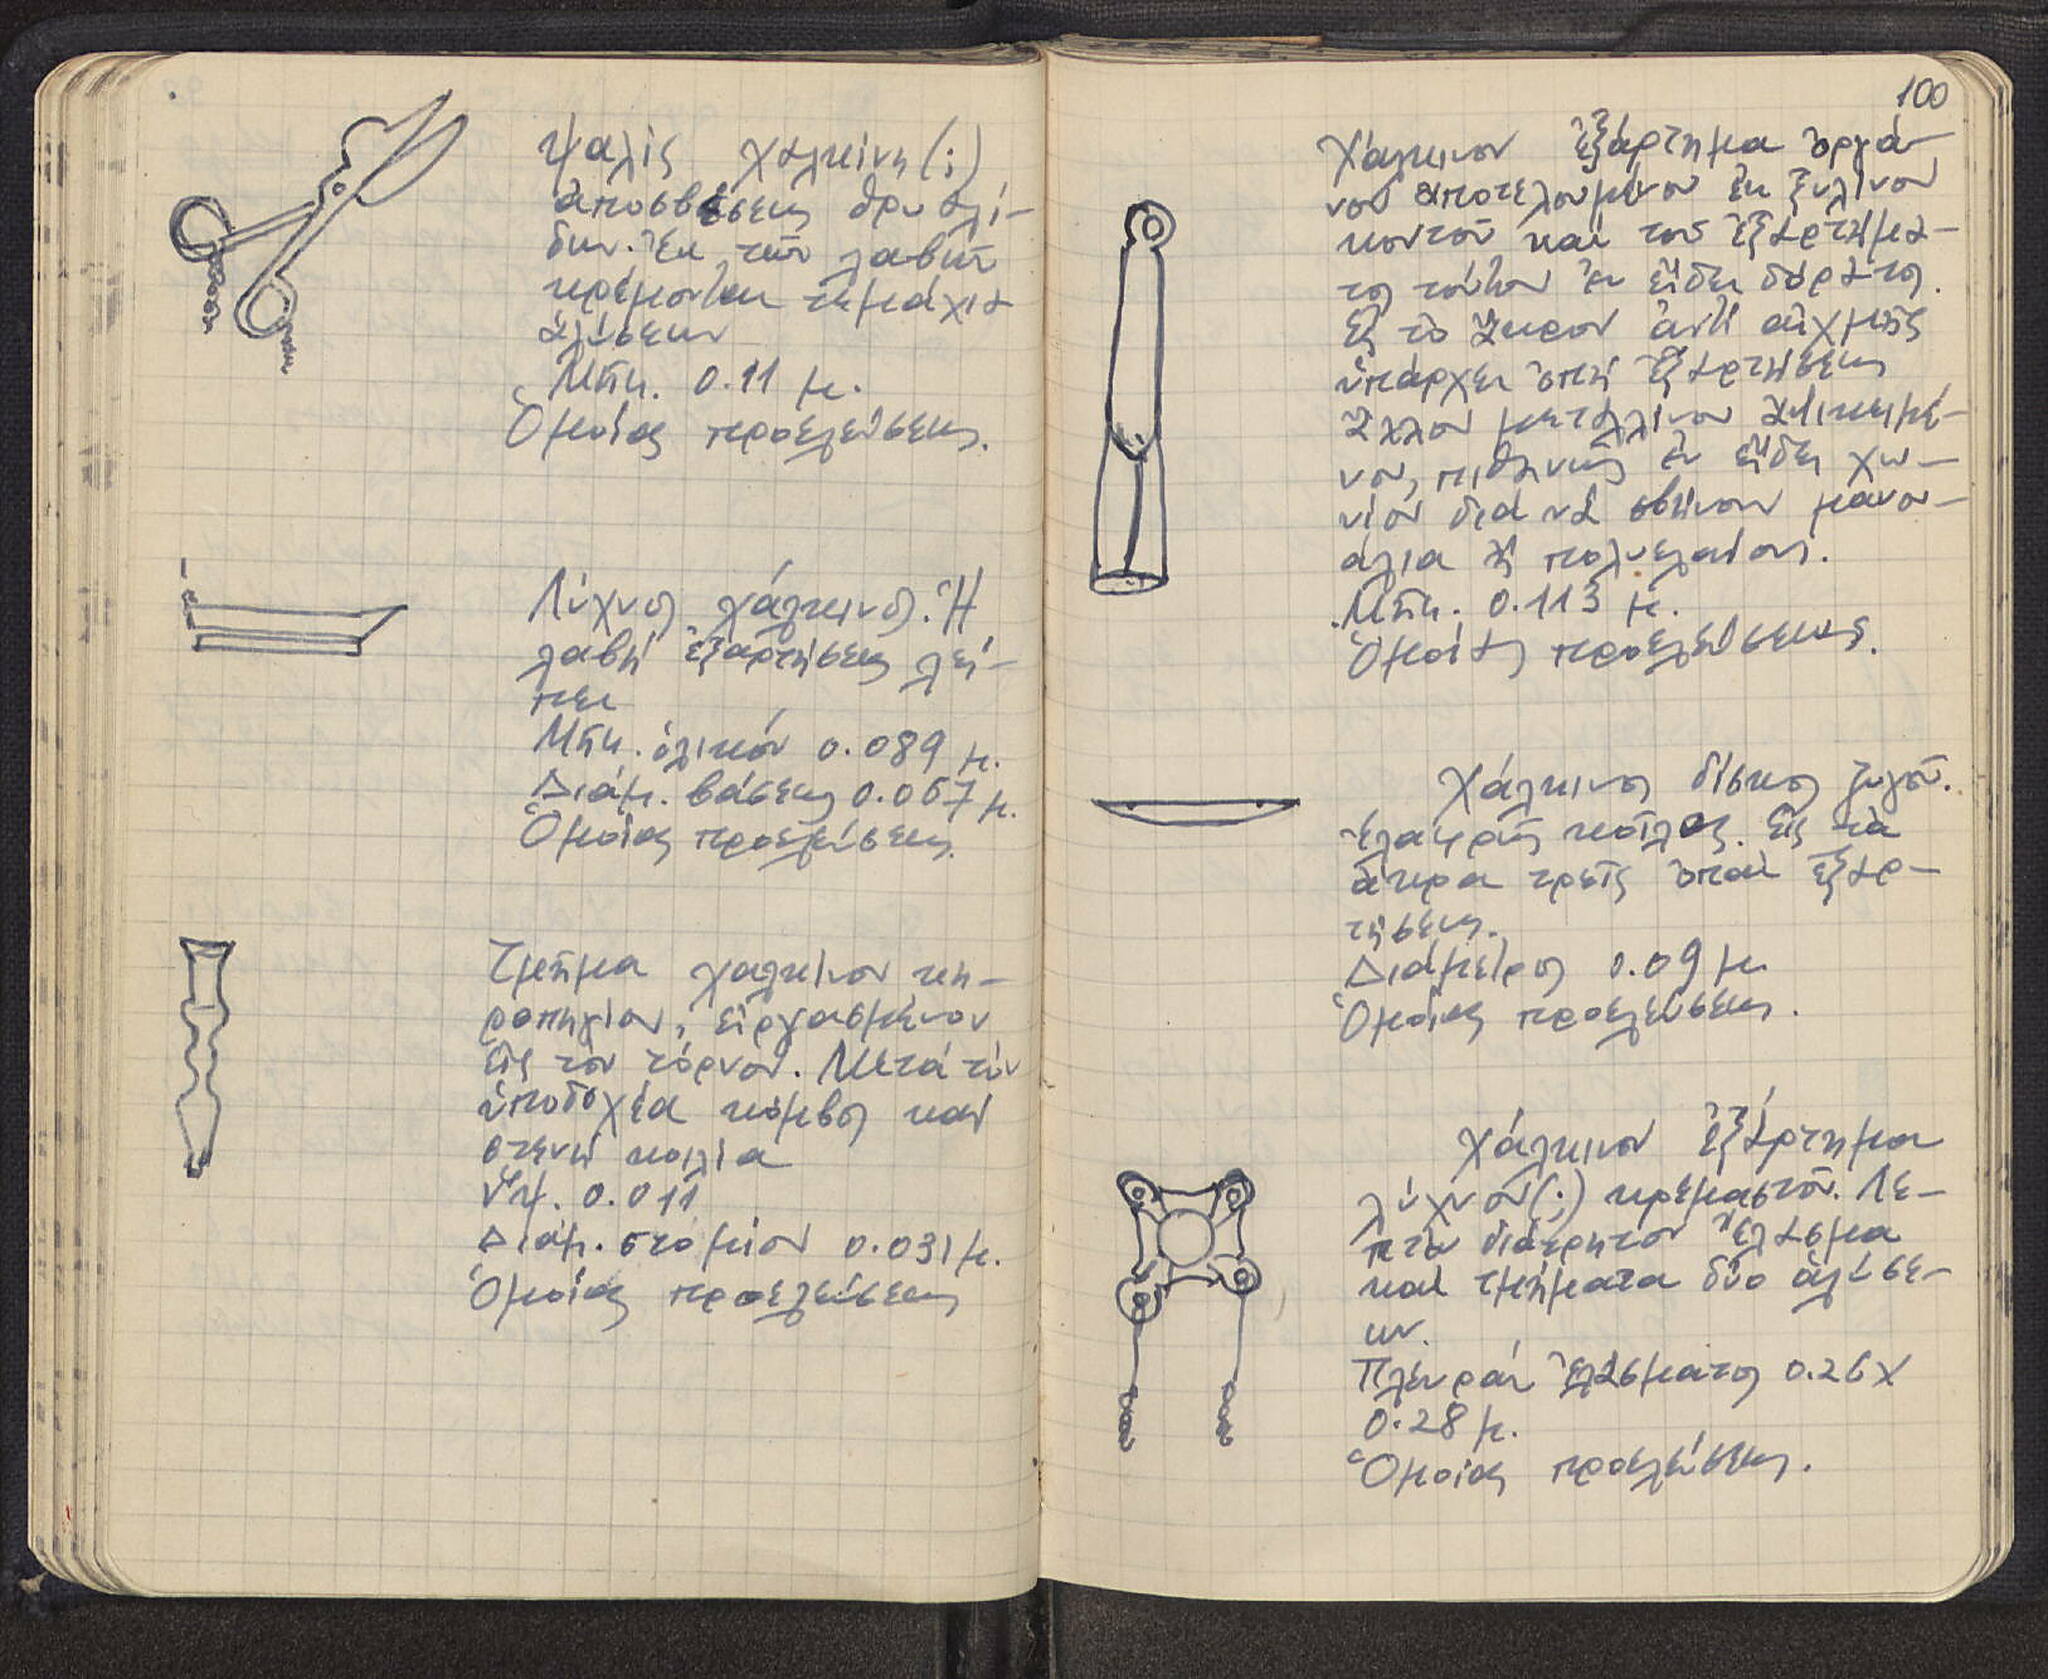 Ψαλὶς χαλκίνη (;)
ἀποσβέσεως θρυαλλί-
δων. Ἐκ τῶν λαβῶν
κρέμονται τεμάχια
ἁλύσεων
Μῆκ. 0.11 μ.
Ὁμοίας προελεύσεως.
Λύχνος χάλκινος. Ἡ
λαβὴ ἐξαρτήσεως λεί-
πει
Μῆκ. ὁλικόν 0.089 μ.
Διάμ. βάσεως 0.067 μ.
Ὁμοίας προελεύσεως.
Τμῆμα χαλκίνου κη-
ροπηγίου, εἰργασμένον
εἰς τὸν τόρνον. Μετά τὸν
ὑποδοχέα κόμβος καὶ
στενὴ κοιλία
Ὕψ. 0.011
Διάμ. στομίου 0.031 μ.
Ὁμοίας προελεύσεως
100
Χάλκινον ἐξάρτημα ὀργά-
νου ἀποτελουμένου ἐκ ξυλίνου
κοντοῦ καὶ τοῦ ἐξαρτήμα-
τος τούτου ἐν εἴδει δόρατος.
Εἰς τὸ ἄκρον ἀντὶ αἰχμῆς
ὑπάρχει ὀπὴ ἐξαρτήσεως
ἄλλου μεταλλίνου ἀντικειμέ-
νου, πιθανῶς ἐν εἴδει χω-
νίου διὰ νὰ σβήνουν μανου-
άλια ἢ πολυελαίους.
Μῆκ. 0.113 μ.
Ὁμοίας προελεύσεως.
Χάλκινος δίσκος ζυγοῦ.
Ἐλαφρῶς κοῖλος. Εἰς τὰ
ἄκρα τρεῖς ὀπαὶ ἐξαρ-
τήσεως.
Διάμετρος 0.09 μ.
Ὁμοίας προελεύσεως.
Χάλκινον ἐξάρτημα
λύχνου (;) κρεμαστοῦ. Λε-
πτὸν διάτρητον ἔλασμα
καὶ τμήματα δύο ἁλύσε-
ων.
Πλευραὶ ἐλάσματος 0.26 χ
0.28 μ.
Ὁμοίας προελεύσεως.